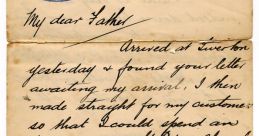 My dear Father
Arrived at Tiverton
yesterday & found your letter
awaiting my arrival, I then
made straight for my customer
so that I could spend an